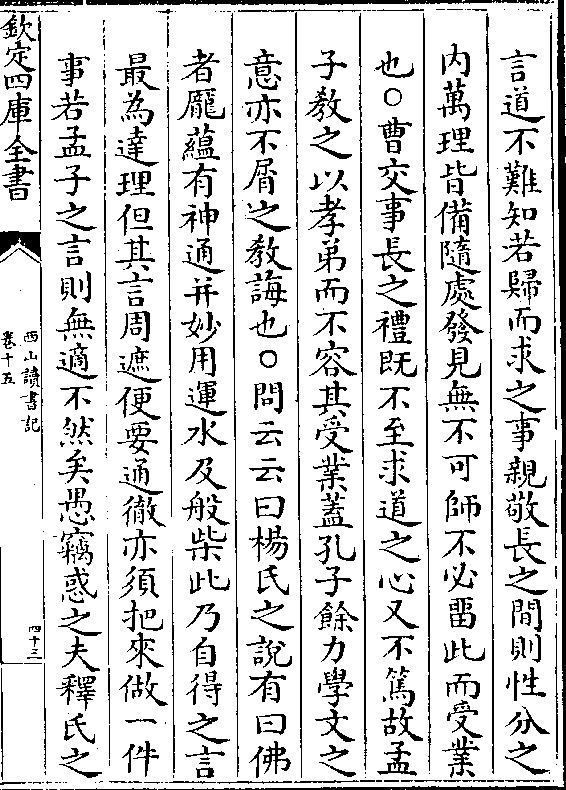 言道不難知若歸而求之事親敬長之間則性分之
内萬理皆備隨處發見無不可師不必留此而受業
也○曹交事長之禮既不至求道之心又不篤故孟
子教之以孝弟而不容其受業蓋孔子餘力學文之
意亦不屑之教誨也○問云云曰楊氏之説有曰佛
者龎藴有神通并妙用運水及般柴此乃自得之言
最為達理但其言周遮便要通徹亦須把來做一件
事若孟子之言則無適不然矣愚竊惑之夫釋氏之
欽定四庫全書
西山讀書記
卷十五
四十三